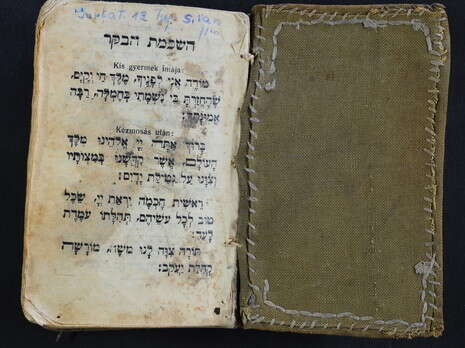 12
השכמת הבקר
Kis gyermek imája:
מוֹדֶה אֲנִי לְפָנֶיךָ, מֶלֶךְ חַי וְקַיָּם,
שֶׁהֶחֱזַרְתָּ בִּי נִשְׁמָתִי בְּחֶמְלָה, רַבָּה
אֱמוּנָתֶךָ:
Kézmosás után:
בָּרוּךְ אַתָּה יְיָ אֱלֹהֵינוּ מֶלֶךְ
הָעוֹלָם, אֲשֶׁר קִדְּשָׁנוּ בְּמִצְוֹתָיו
וְצִוָּנוּ עַל נְטִילַת יָדָיִם:
רֵאשִׁית חָכְמָה יִרְאַת יְיָ, שֵׂכֶל
טוֹב לְכָל עֹשֵׂיהֶם, תְּהִלָּתוֹ עֹמֶדֶת
לָעַד:
תּוֹרָה צִוָּה לָנוּ מֹשֶׁה, מוֹרָשָׁה
קְהִלַּת יַעֲקֹב: